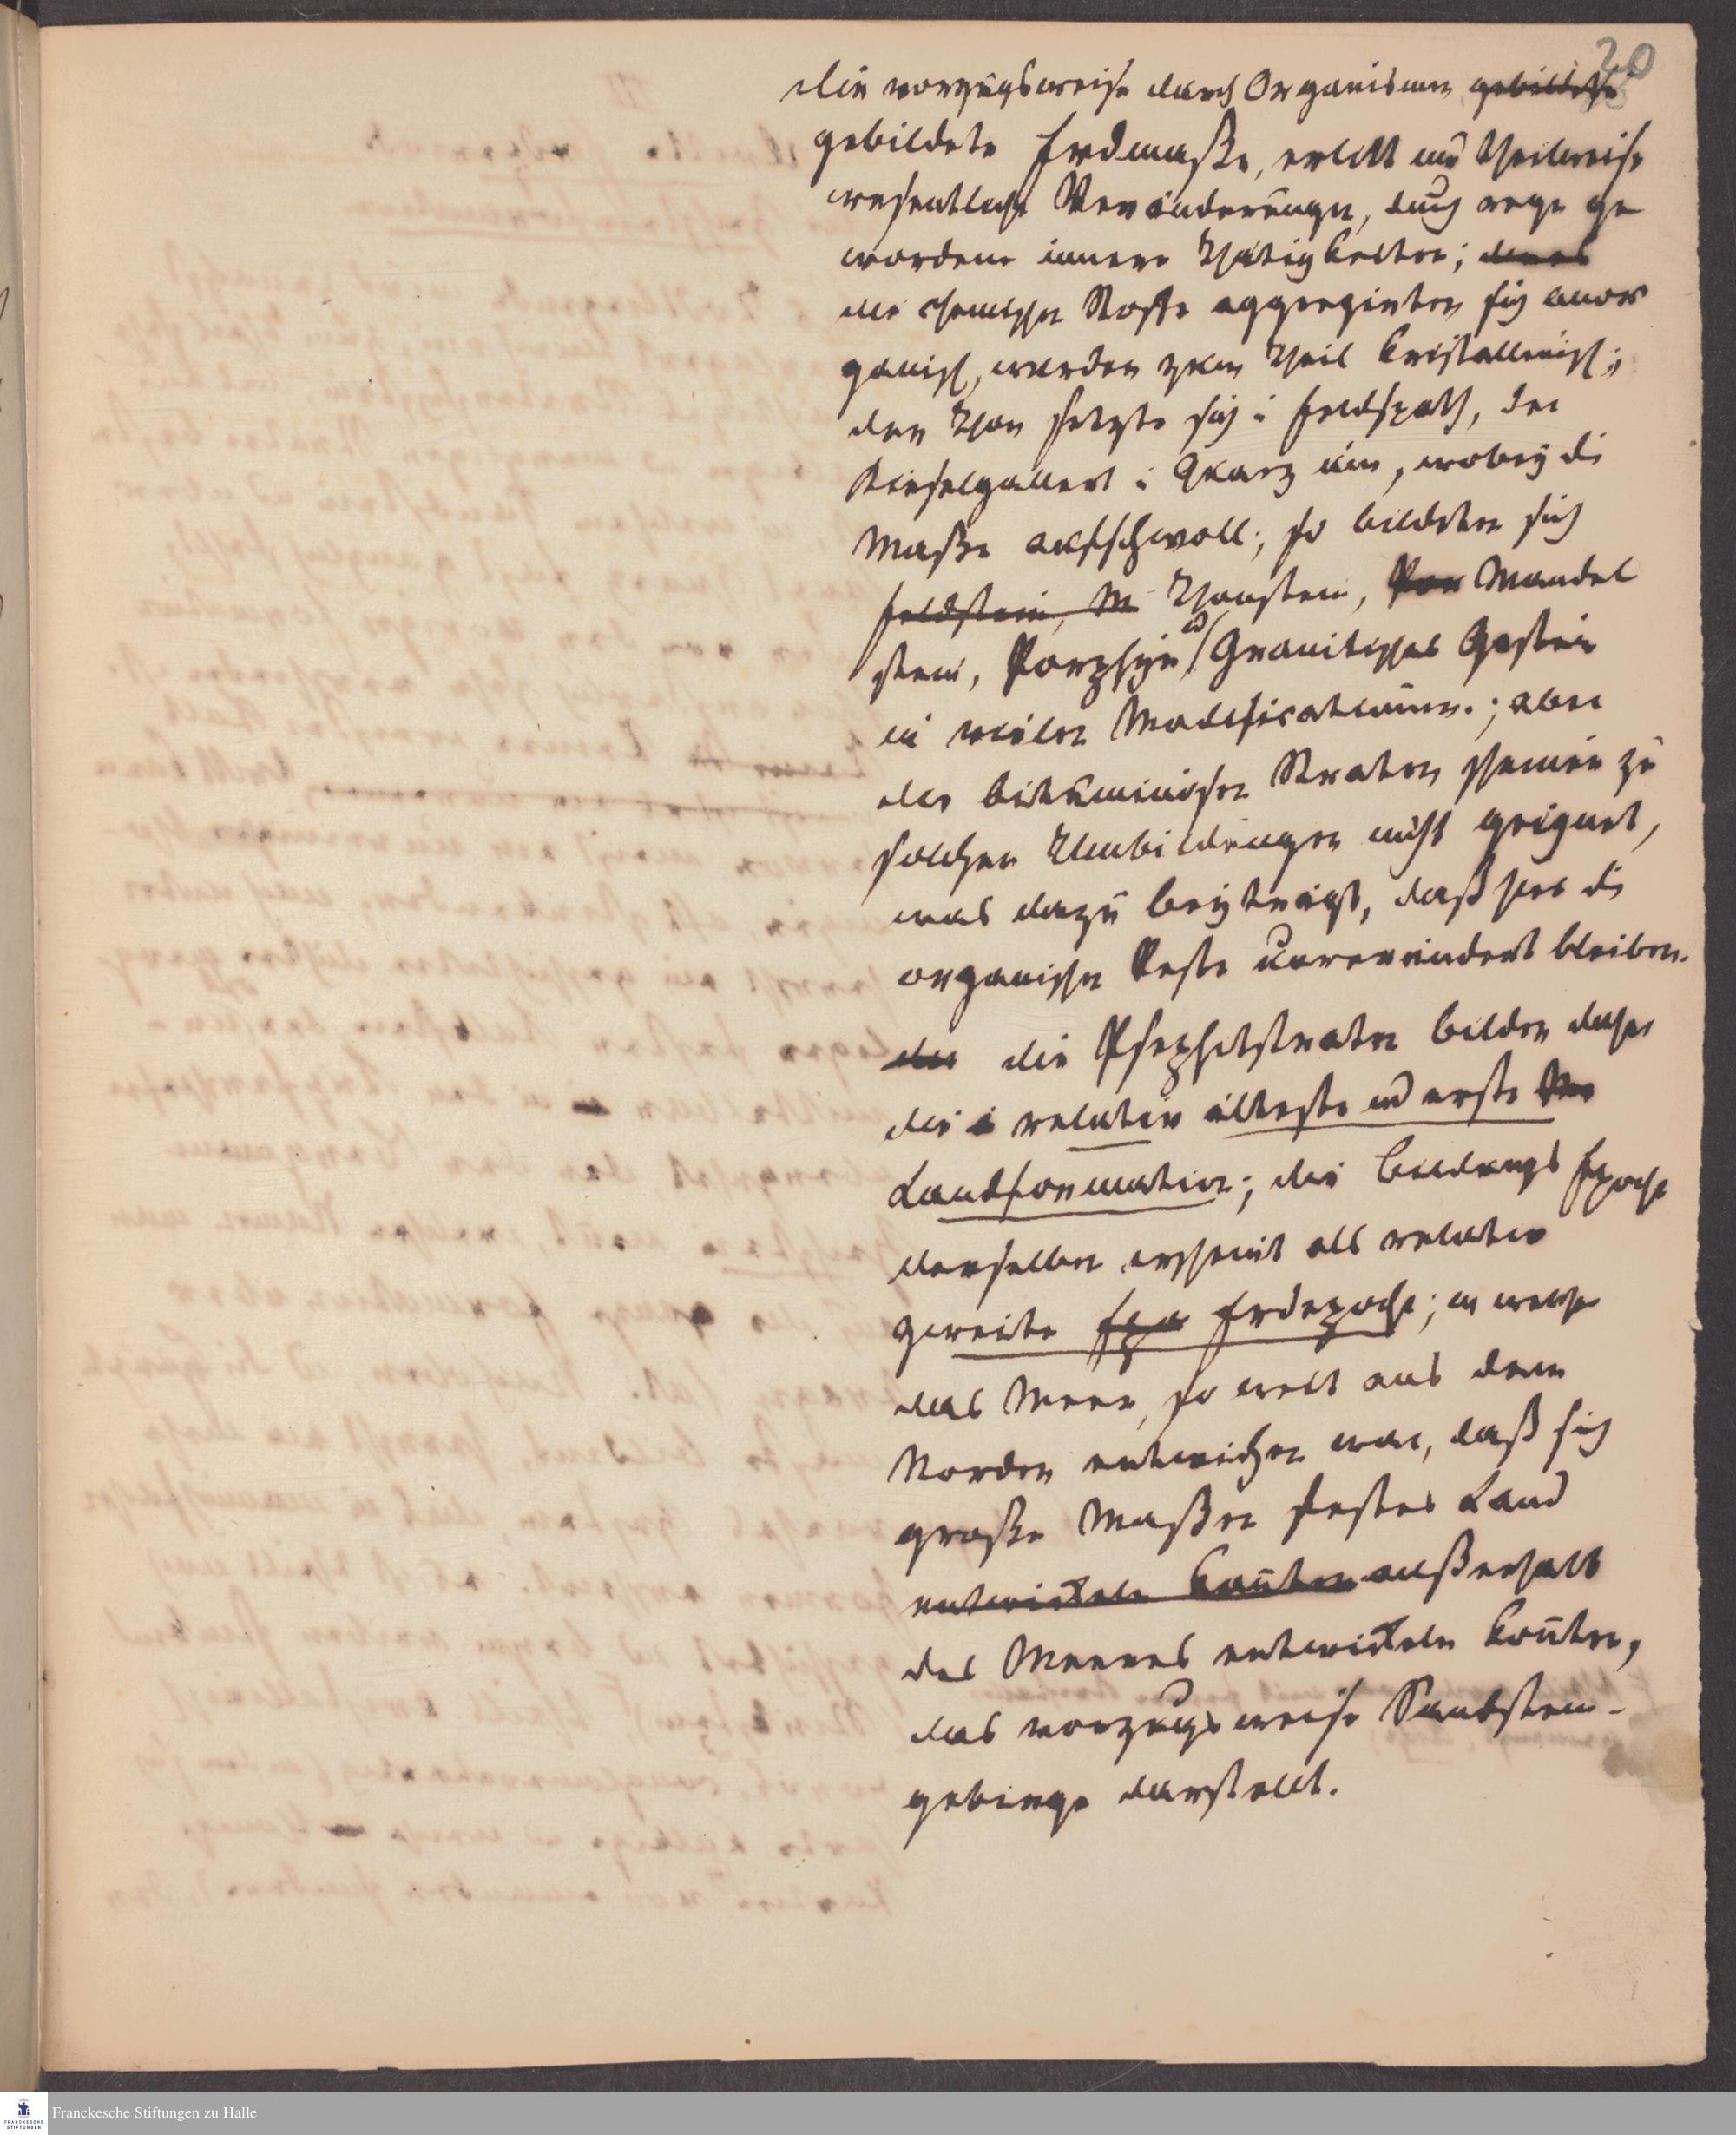 20
die vorzugsweise durch Organismen gebildete
gebildete Erdmaße, erlitt nun theilweise
wesentliche Veränderungen, durch rege ge
wordene innere Thätigkeiten;
die chemischen Stoffe aggregirten sich anor
ganisch, wurden zum Theil kristallinisch;
der Thon setzte sich i Feldspath, der
Kieselgallert i Quarz um, wobey die
Maße aufschwoll; so bildeten sich
Feldstein, M Thonstein, Por Mandel
stein, Porphyr ud Granitisches Gestein
in vielen Modificationen.; aber
die bituminösen Straten scheinen zu
solchen Umbildungen nicht geignet,
was dazu beyträgt, daß hier die
organischen Reste unverändert bleiben.
die die Psephitstraten bilden daher
die i relativ älteste ud erste
Landformation; die Bildungs Epoche
derselben erscheint als relativ
zweite Epo Erdepoche; in welcher
das Meer, so weit aus dem
Norden entwichen war, daß sich
große Maßen festes Land
entwickeln konten außerhalb
des Meeres entwickeln konten,
das vorzugsweise Sandstein-
gebirge darstellt.
Franckesche Stiftungen zu Halle